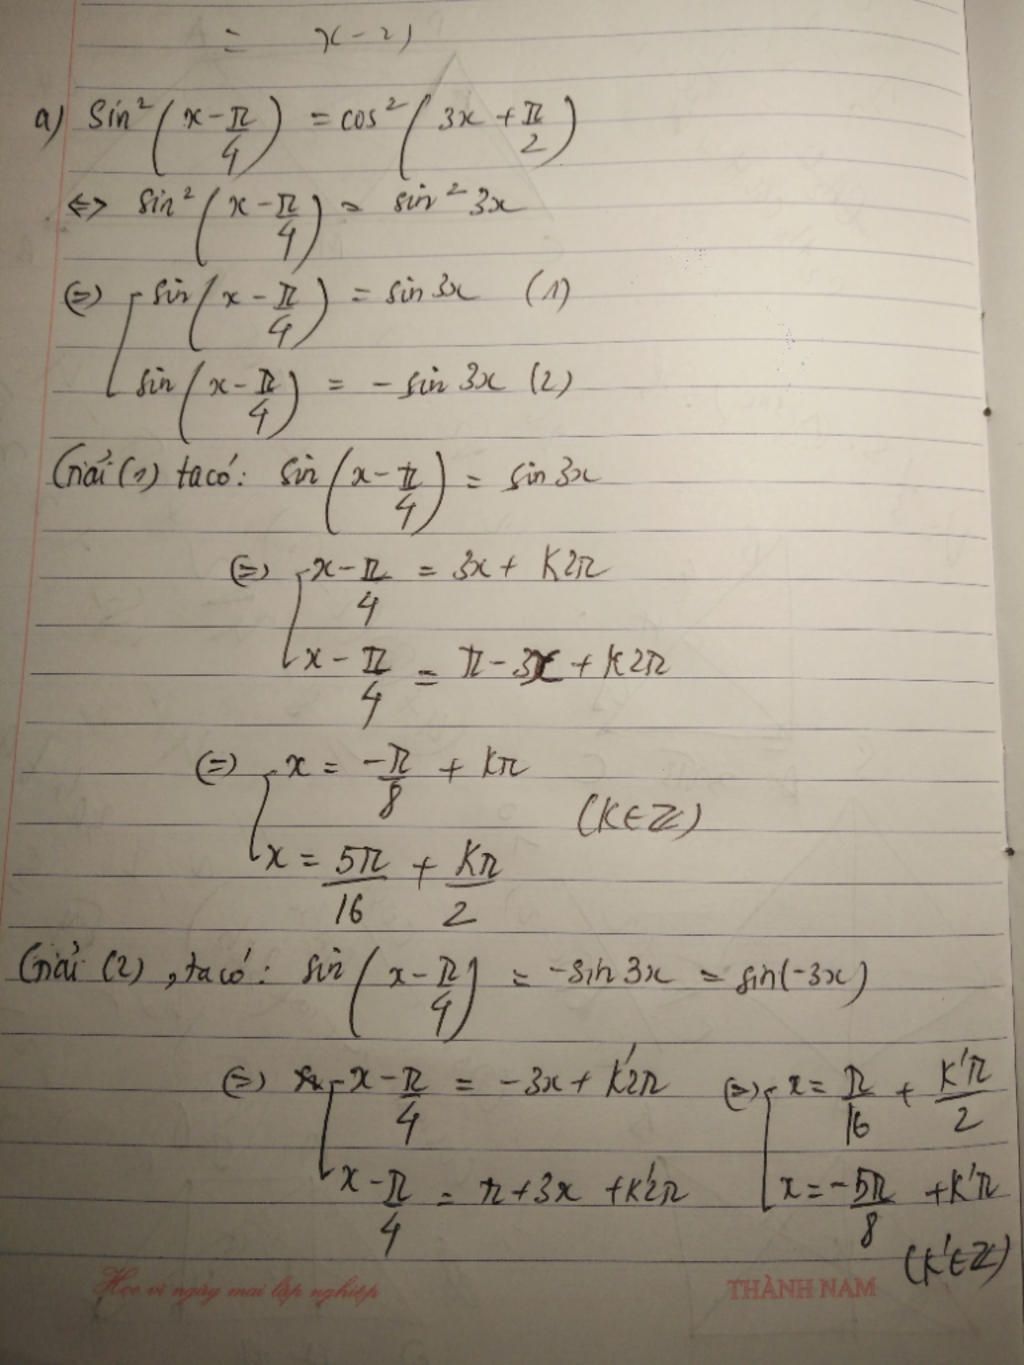 = x-2)
a) Sin²(x-π/4) = cos²(3x+π/2)
<=> sin²(x-π/4) = sin²3x
(=) sin(x-π/4) = sin3x (1)
sin(x-π/4) = -sin3x (2)
Giải (1) ta có: sin(x-π/4) = sin3x
(=) x-π/4 = 3x+K2π
x-π/4 = π-3x+K2π
(=) x = -π/8 + Kπ
(K∈Z)
x = 5π/16 + Kπ/2
Giải (2), ta có: sin(x-π/4) = -sin3x = sin(-3x)
(=) x-π/4 = -3x+K'2π (=) x = π/16 + K'π/2
x-π/4 = π+3x+K'2π x = -5π/8 + K'π
(K'∈Z)
Học vì ngày mai lập nghiệp THÀNH NAM